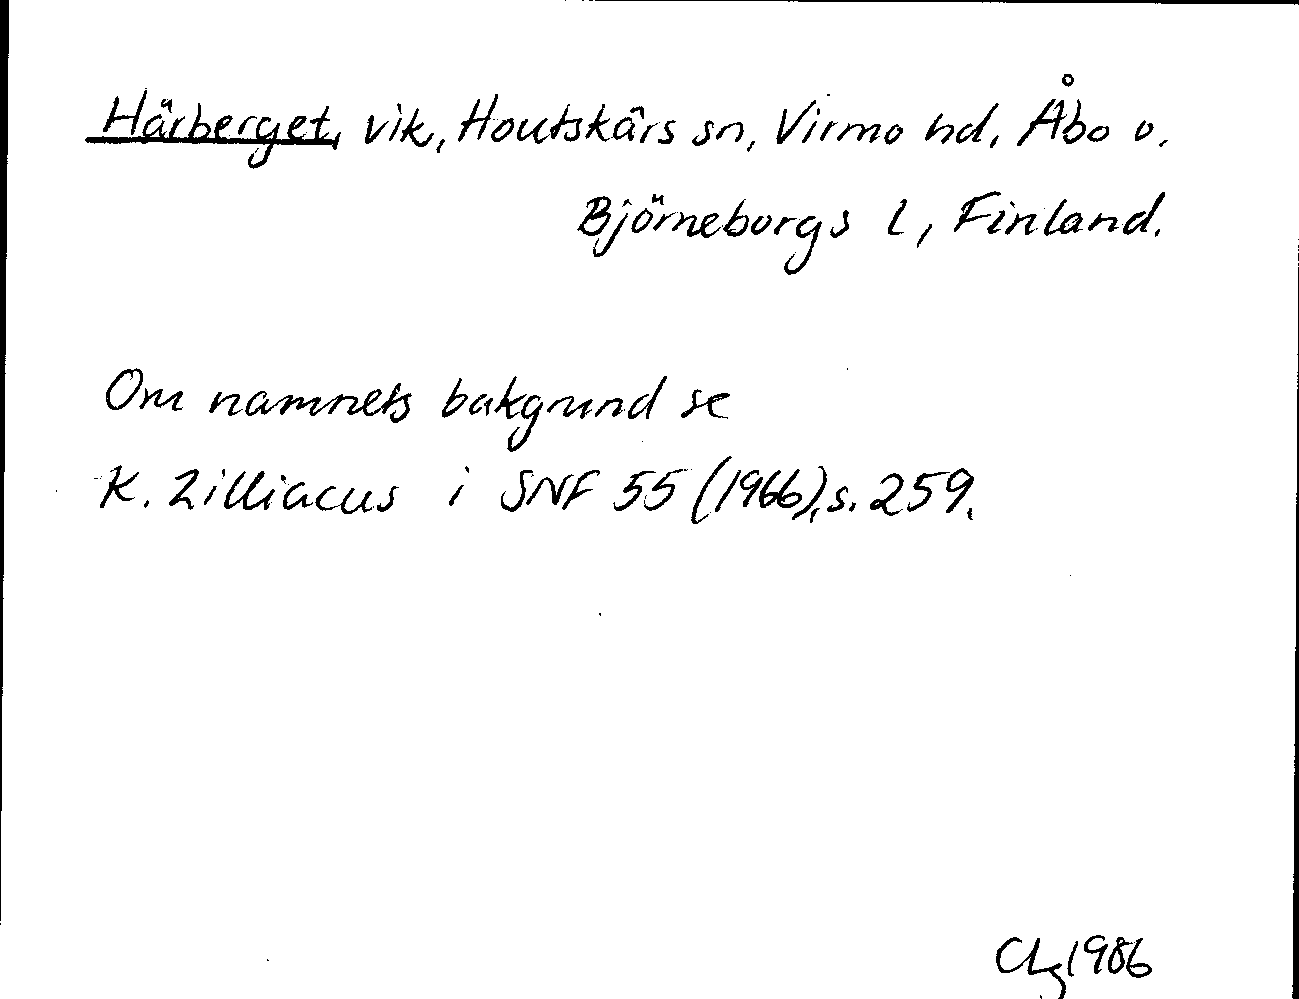 Härberget, vik, Houtskärs sn, Virmo hd. Åbo o.
Björneborgs l, Finland.
Om namnets bakgrund se
K. Zilliacus i SNF 55 (1966), s. 259.
1986